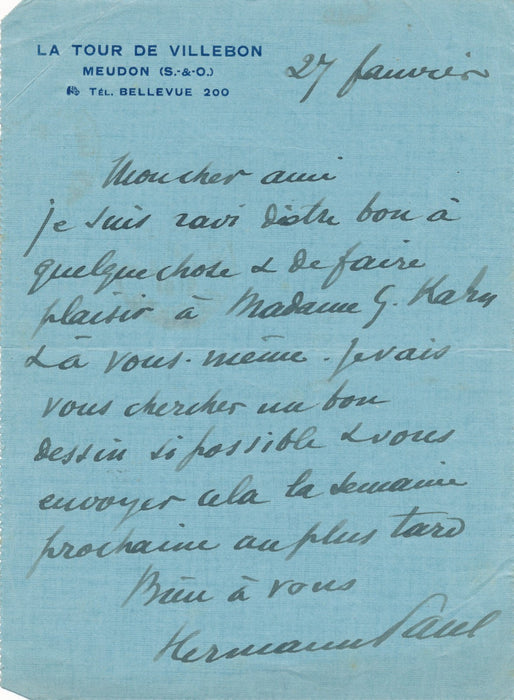 LA TOUR DE VILLEBON
MEUDON (S.-&-O.)
TÉL. BELLEVUE 200
27 janvier
Mon cher ami
je suis ravi d'être bon à
quelque chose & de faire
plaisir à Madame G. Kahn
& à vous-même. Je vais
vous chercher un bon
dessin si possible & vous
envoyer cela la semaine
prochaine au plus tard
Bien à vous
Hermann Paul